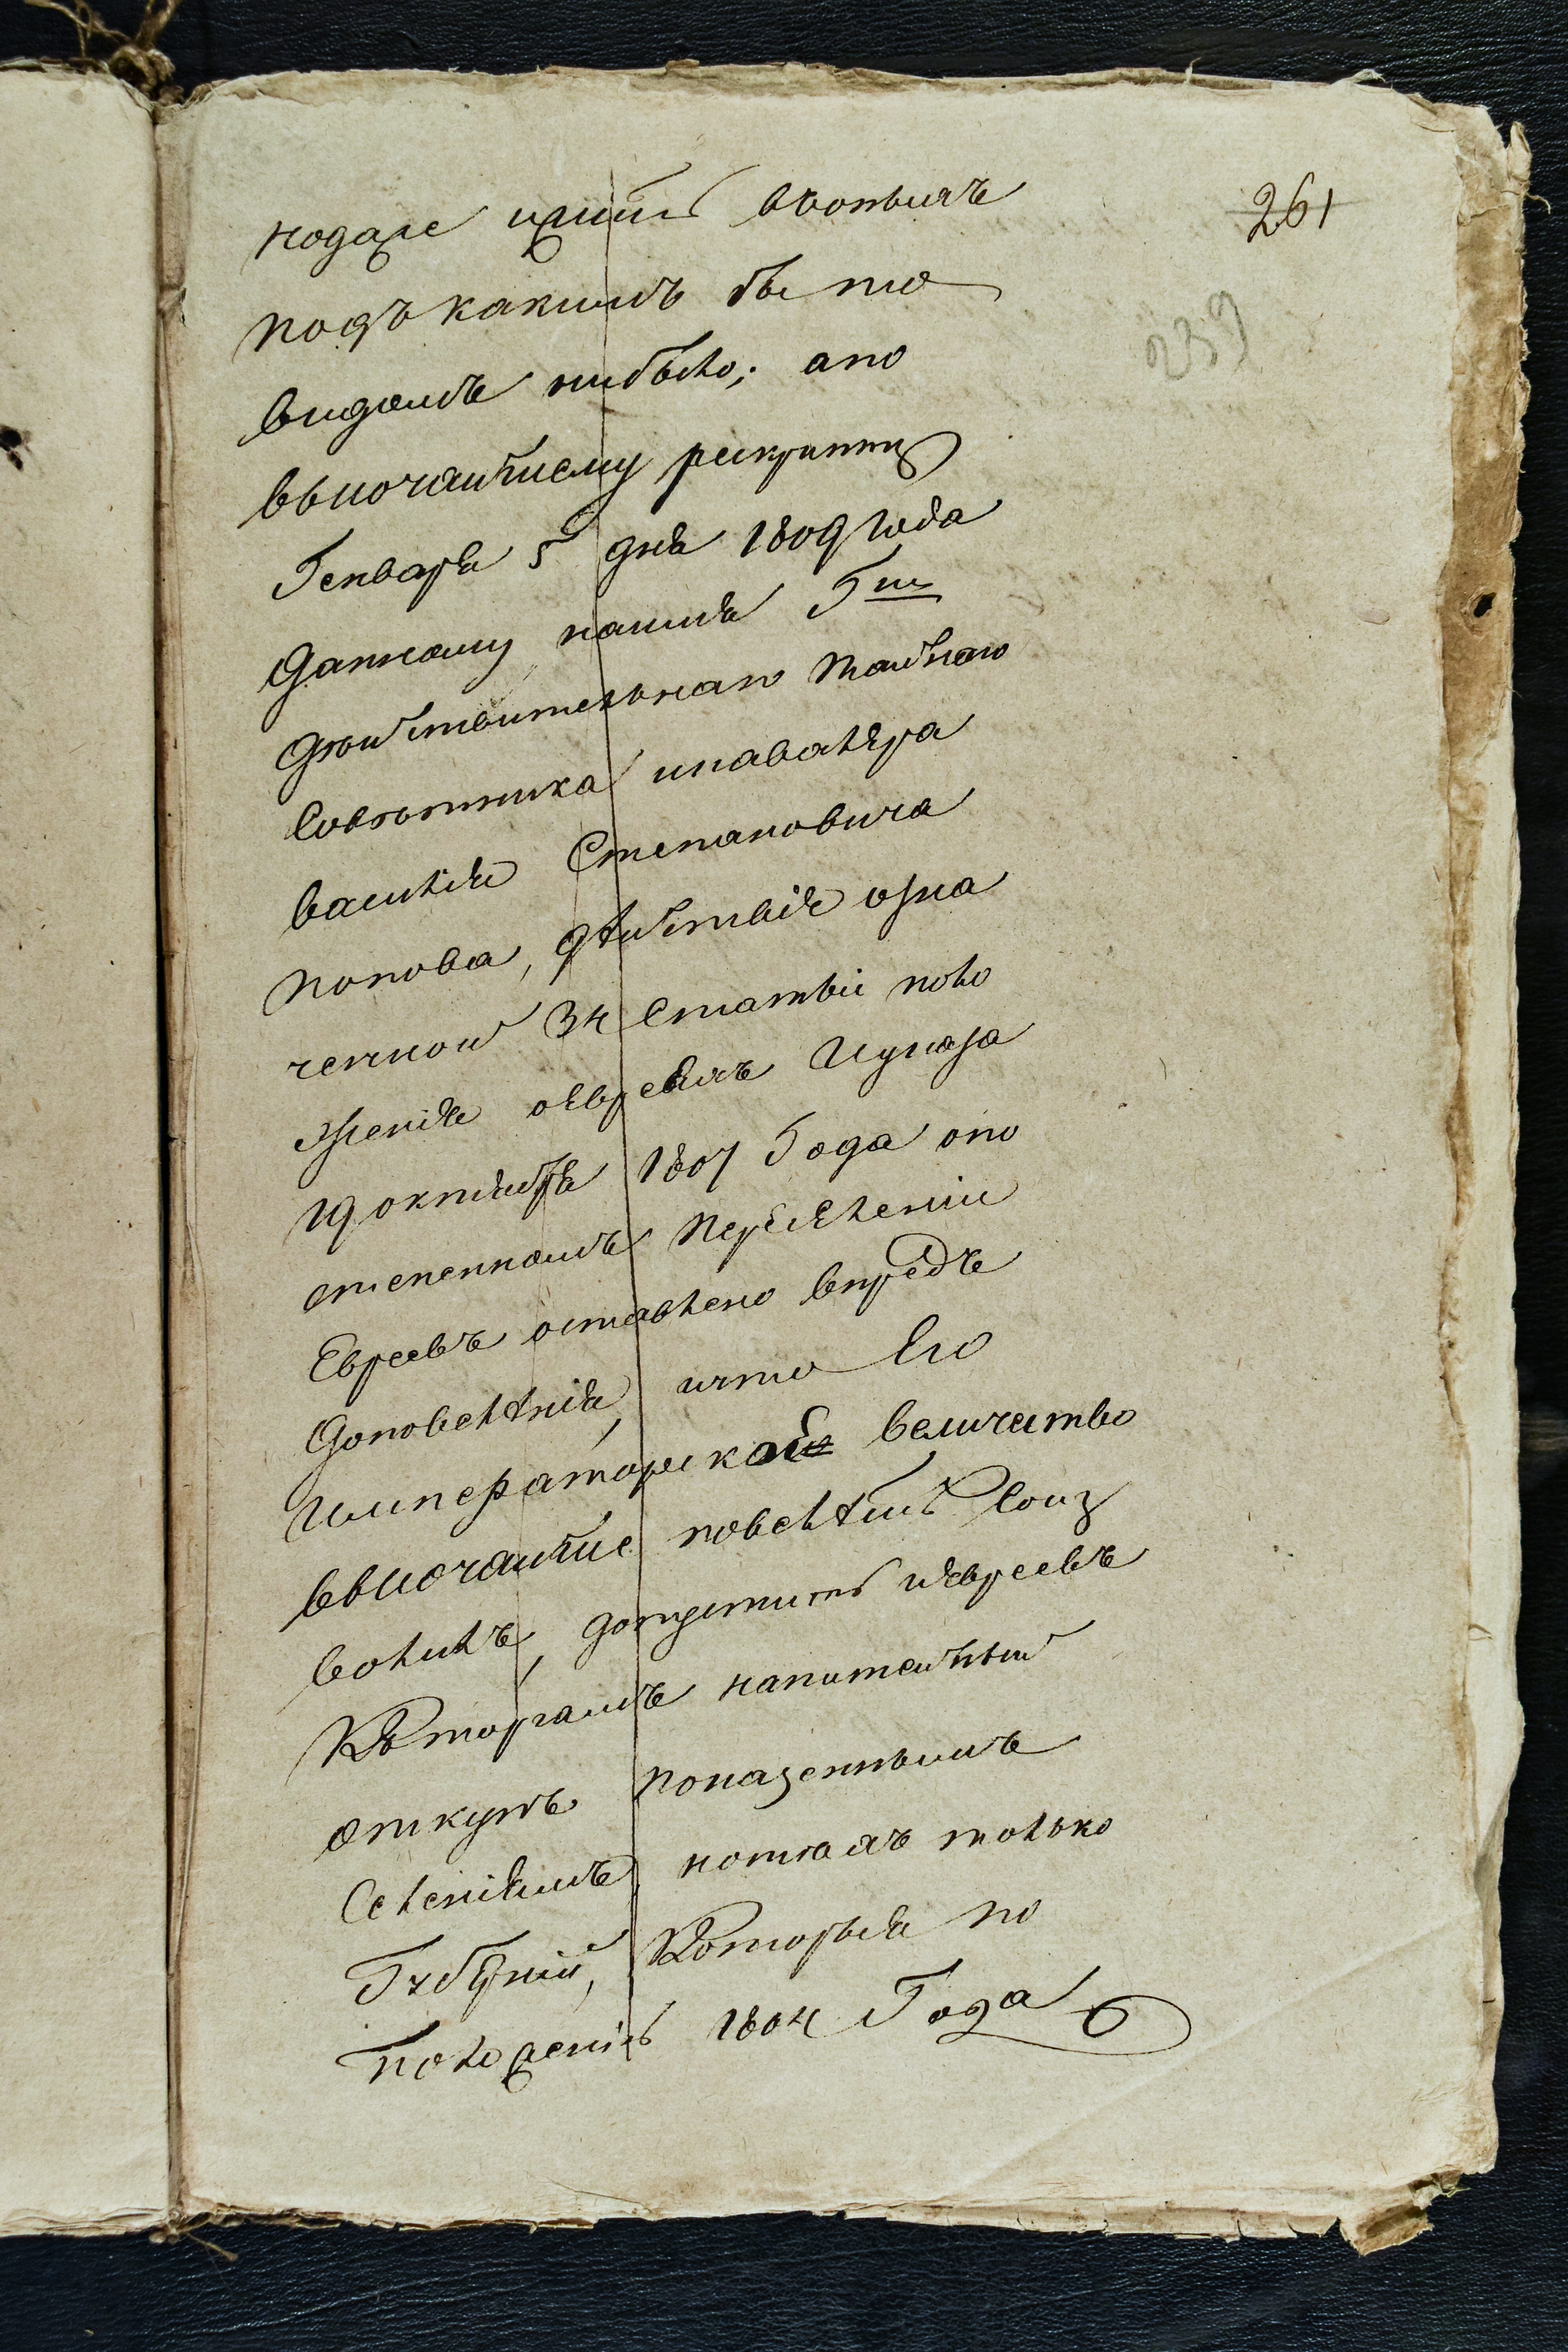 261
239
нодаже ижить вооныхъ
подъ какимъ бы то
видомъ нибыло; апо
высочайшему рескрипту
Генваря 5 дня 1809 года
данному наимя Гна
дѣйствительнаго тайнаго
Совѣтника икавалера
василія Степановича
попова, дѣйствіе озна
ченной 34 Статьи поло
женія оевреяхъ Иуказа
19 октября 1807 Года опо
степенномъ переселеніи
Евреевъ оставлено впредь
доповелѣнія, ичто Его
императорское величество
высочайше повелѣть Соиз
волилъ, допустить иевреевъ
Къторгамъ напитейный
откупъ показеннымъ
Селеніямъ, нотѣхъ только
Губерній, Которыя по
положенію 1804 Года